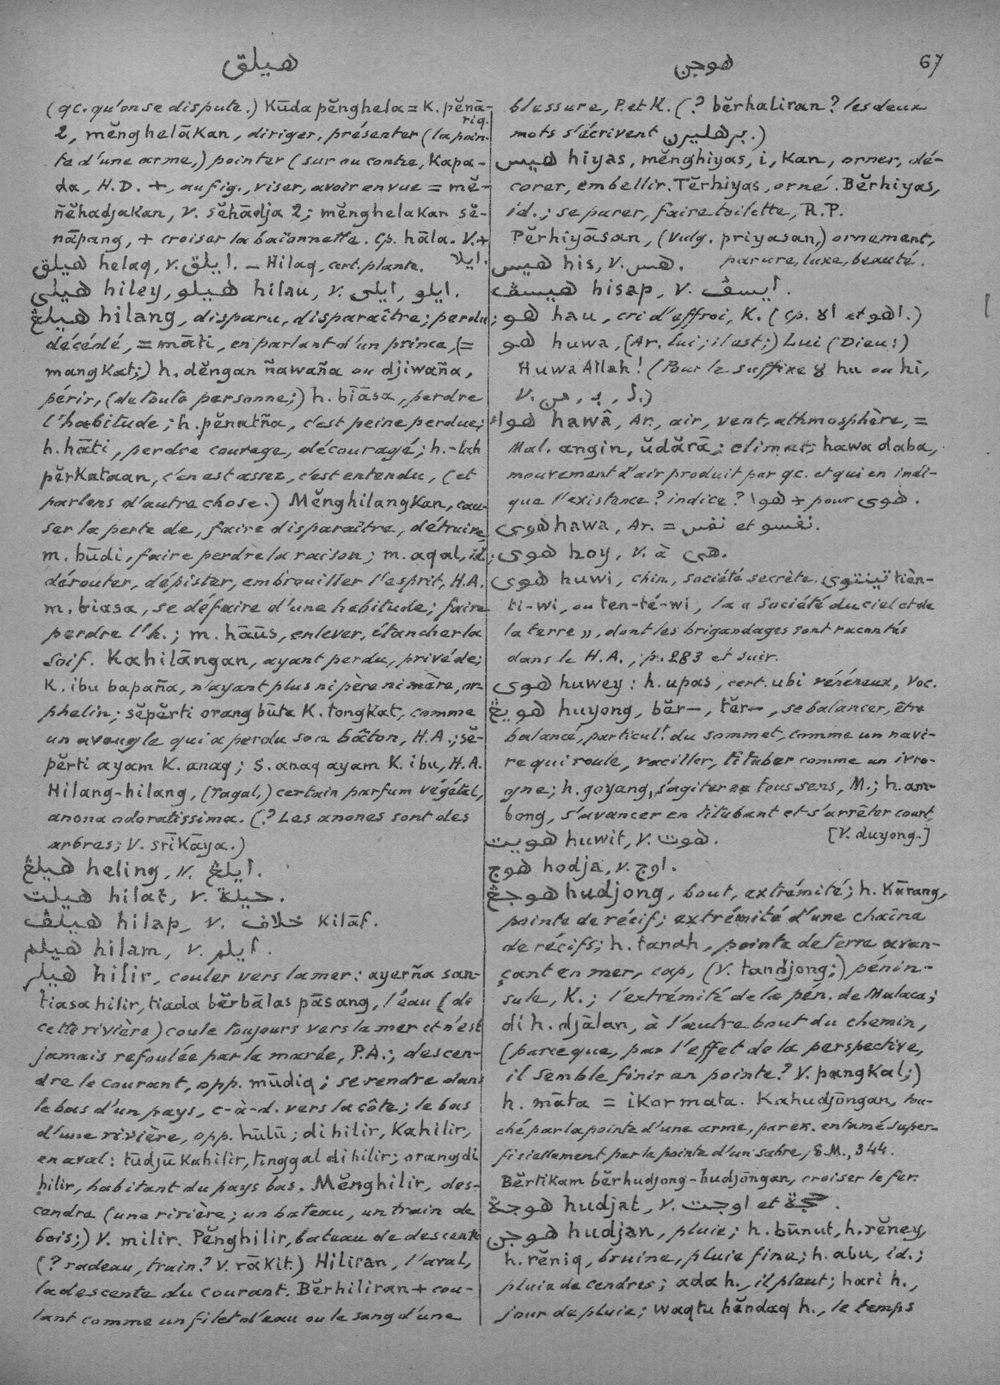 هيلق
هوجن
67
(qc. qu'on se dispute.) Kūda pĕnghela = K. pĕnā-
riq.
2, mĕnghelāKan, diriger, présenter (la poin-
te d'une arme,) pointer (sur ou contre, Kapa-
da, H.D. +, au fig., viser, avoir en vue = mĕ-
ñĕhadjaKan, v. sĕhādja 2; mĕnghelaKan sĕ-
nāpang, + croiser la baïonnette. Cp. hāla. V. +
هيلق helaq, v. ايلق. — Hilaq, cert. plante. ايلا
هيلي hiley, هيلو hilau, v. ايلي, ايلو.
هيلڠ hilang, disparu, disparaître; perdu;
décédé, = māti, en parlant d'un prince, (=
mangKat;) h. dĕngan ñawaña ou djiwaña,
périr, (de toute personne;) h. bīāsa, perdre
l'habitude; h. pĕnatña, c'est peine perdue;
h. hāti, perdre courage, découragé; h.-lah
pĕrKataan, c'en est assez, c'est entendu, (et
parlons d'autre chose.) MĕnghilangKan, cau-
ser la perte de, faire disparaître, détruire;
m. būdi, faire perdre la raison; m. aqal, id.
dérouter, dépister, embrouiller l'esprit, H.A.
m. biasa, se défaire d'une habitude; faire
perdre l'h.; m. hāus, enlever, étancher la
soif. Kahilāngan, ayant perdu, privé de;
K. ibu bapaña, n'ayant plus ni père ni mère, or-
phelin; sĕpĕrti orang būta K. tongKat, comme
un aveugle qui a perdu son bâton, H.A.; sĕ-
pĕrti ayam K. anaq; S. anaq ayam K. ibu, H.A.
Hilang-hilang, (Tagal,) certain parfum végétal,
anona odoratissima. (? Les anones sont des
arbres; V. srīKāya.)
هيلڠ heling, v. ايلڠ.
هيلت hilat, v. حيلة.
هيلڤ hilap, v. خلاف Kilāf.
هيلم hilam, v. ايلم.
هيلر hilir, couler vers la mer: ayerña san-
tiasa hilir, tiada bĕrbālas pāsang, l'eau (de
cette rivière) coule toujours vers la mer et n'est
jamais refoulée par la marée, P.A.; descen-
dre le courant, opp. mūdiq; se rendre dans
le bas d'un pays, c-à-d. vers la côte; le bas
d'une rivière, opp. hūlū; di hilir, Kahilir,
en aval: tūdjū Kahilir, tinggal di hilir; orang di
hilir, habitant du pays bas. Mĕnghilir, des-
cendre (une rivière; un bateau, un train de
bois;) V. milir. Pĕnghilir, bateau de descente
(? radeau, train? V. rāKit.) Hiliran, l'aval,
la descente du courant. Bĕrhiliran + cou-
lant comme un filet d'eau ou le sang d'une
blessure, P. et K. (? bĕrhaliran? les deux
mots s'écrivent برهليرن.)
هيس hiyas, mĕnghiyas, i, Kan, orner, dé-
corer, embellir. Tĕrhiyas, orné. Bĕrhiyas,
id.; se parer, faire toilette, R.P.
Pĕrhiyāsan, (Vulg. priyasan,) ornement,
parure, luxe, beauté.
هيس his, v. هس.
هيسڤ hisap, v. ايسڤ.
هو hau, cri d'effroi, K. (Cp. اهو et ا۵.)
هو huwa, (Ar., lui; il est;) Lui (Dieu!)
Huwa Allah! (Pour le suffixe ۵ hu ou hi,
هواء hawâ, Ar., air, vent, athmosphère, =
Mal. angin, ŭdărā; climat; hawa daba,
mouvement d'air produit par qc. et qui en indi-
que l'existence? indice? هوا + pour هوى.
هوى hawa, Ar. = نفس et نفسو.
هوي hoy, v. à هي.
هوي huwi, chin., société secrète. تينتوي tièn-
ti-wi, ou ten-té-wi, la « Société du ciel et de
la terre », dont les brigandages sont racontés
dans le H.A., p. 283 et suiv.
هوي huwey: h. upas, cert. ubi vénéneux, Voc.
هويڠ huyong, bĕr—, tĕr—, se balancer, être
balancé, particult. du sommet, comme un navi-
re qui roule, vaciller, tituber comme un ivro-
gne; h. goyang, s'agiter en tous sens, M.; h. am-
bong, s'avancer en titubant et s'arrêter court,
[V. duyong.]
هويت huwit, v. هوت.
هوج hodja, v. اوج.
هوجڠ hudjong, bout, extrémité; h. Kārang,
pointe de récif; extrémité d'une chaîne
de récifs; h. tanah, pointe de terre avan-
çant en mer, cap, (V. tandjong;) pénin-
sule, K.; l'extrémité de la pén. de Malaca;
di h. djālan, à l'autre bout du chemin,
(parceque, par l'effet de la perspective,
il semble finir en pointe? V. pangKal;)
h. māta = iKor mata. Kahudjōngan, tou-
ché par la pointe d'une arme, par ex. entamé super-
ficiellement par la pointe d'un sabre, S.M., 344.
BĕrtiKam bĕrhudjong-hudjōngan, croiser le fer.
هوجة hudjat, v. اوجت et حجّة.
هوجن hudjan, pluie; h. būnut, h. rĕney,
h. rĕniq, bruine, pluie fine; h. abu, id.;
pluie de cendres; ada h., il pleut; hari h.,
jour de pluie; waqtu hĕndaq h., le temps